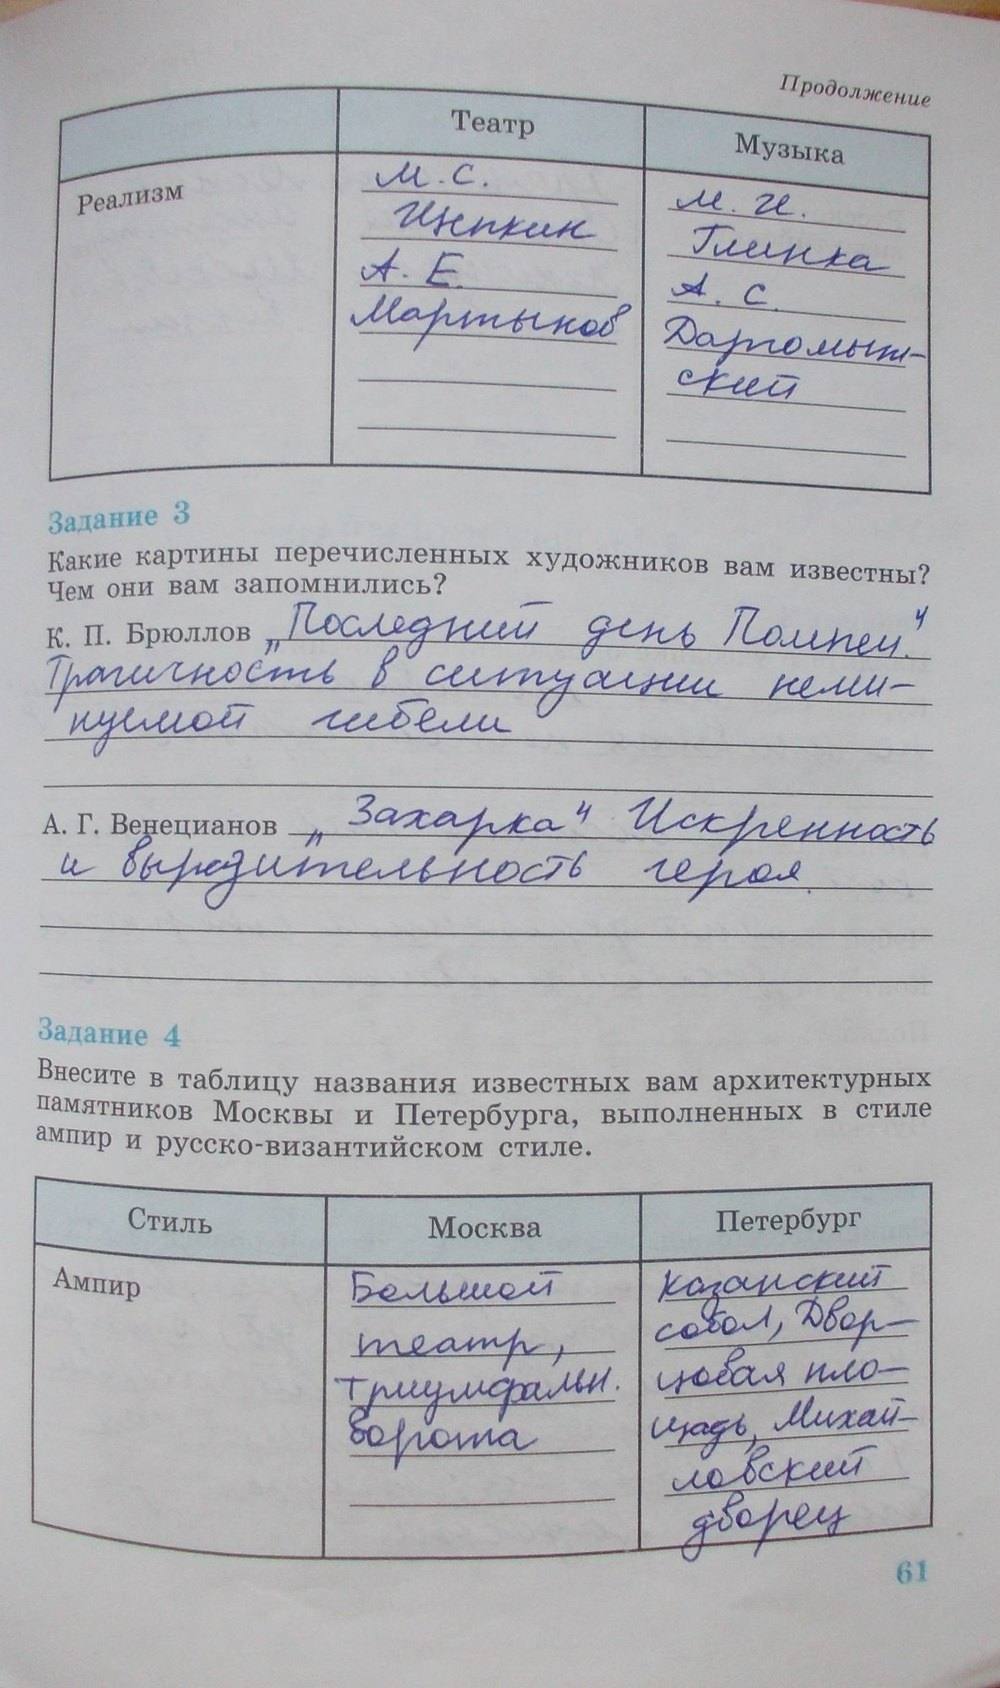 Продолжение
Театр
Музыка
Реализм
М. С.
Щепкин
А. Е.
Мартынов
М. И.
Глинка
А. С.
Даргомыж-
ский
Задание 3
Какие картины перечисленных художников вам известны?
Чем они вам запомнились?
К. П. Брюллов „Последний день Помпеи."
Трагичность в ситуации неми-
нуемой гибели
А. Г. Венецианов „Захарка" Искренность
и выразительность героя.
Задание 4
Внесите в таблицу названия известных вам архитектурных
памятников Москвы и Петербурга, выполненных в стиле
ампир и русско-византийском стиле.
Стиль
Москва
Петербург
Ампир
Большой
театр,
триумфальн.
ворота
Казанский
собол, Двор-
цовая пло-
щадь, Михай-
ловский
дворец
61